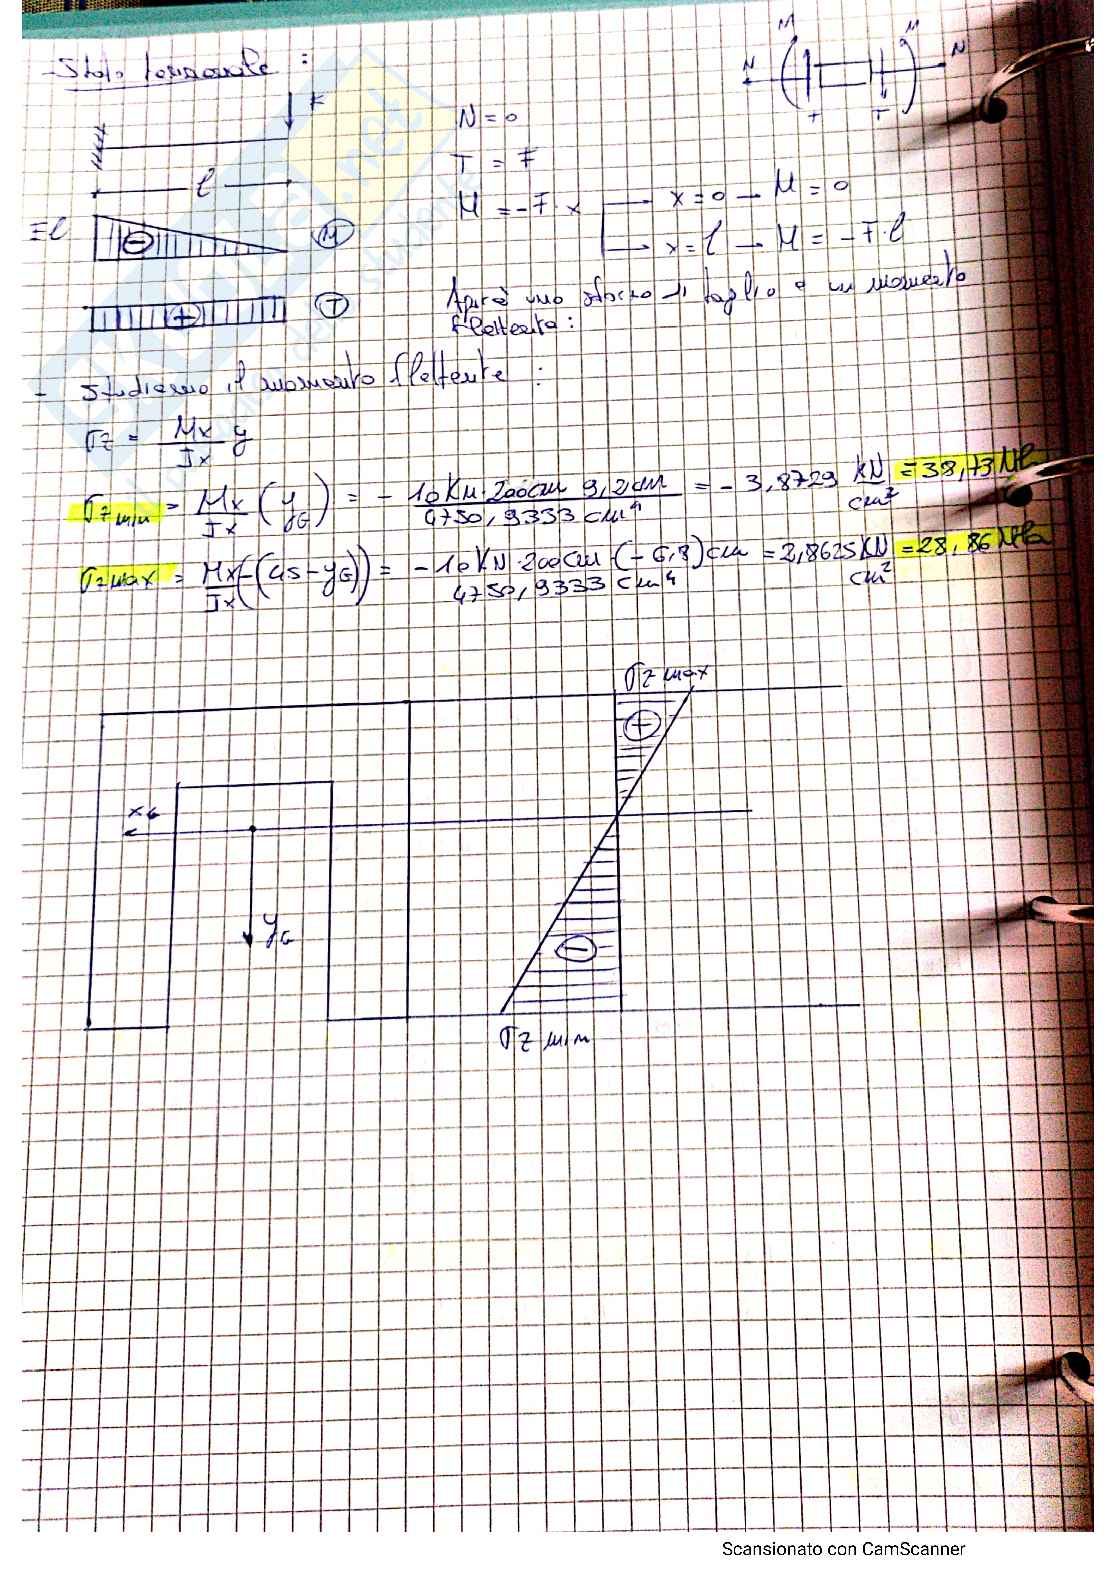 - Stato tensionale :
M M
N N
T T
F
N = 0
T = F
l
M = -F · x x = 0 → M = 0
x = l → M = -F · l
Fl ⊖ M
⊕ T
Agirà uno sforzo di taglio e un momento
flettente :
- Studiamo il momento flettente :
σz = Mx/Jx y
σz min = Mx/Jx (yG) = - 10 KN · 200cm 9,2cm / 4750,9333 cm⁴ = - 3,8729 KN/cm² = 38,73 MPa
σz max = Mx/Jx (-(as-yG)) = - 10 KN · 200cm · (-6,8)cm / 4750,9333 cm⁴ = 2,8625 KN/cm² = 28,86 MPa
σz max
⊕
xG
yG
⊖
σz min
Scansionato con CamScanner